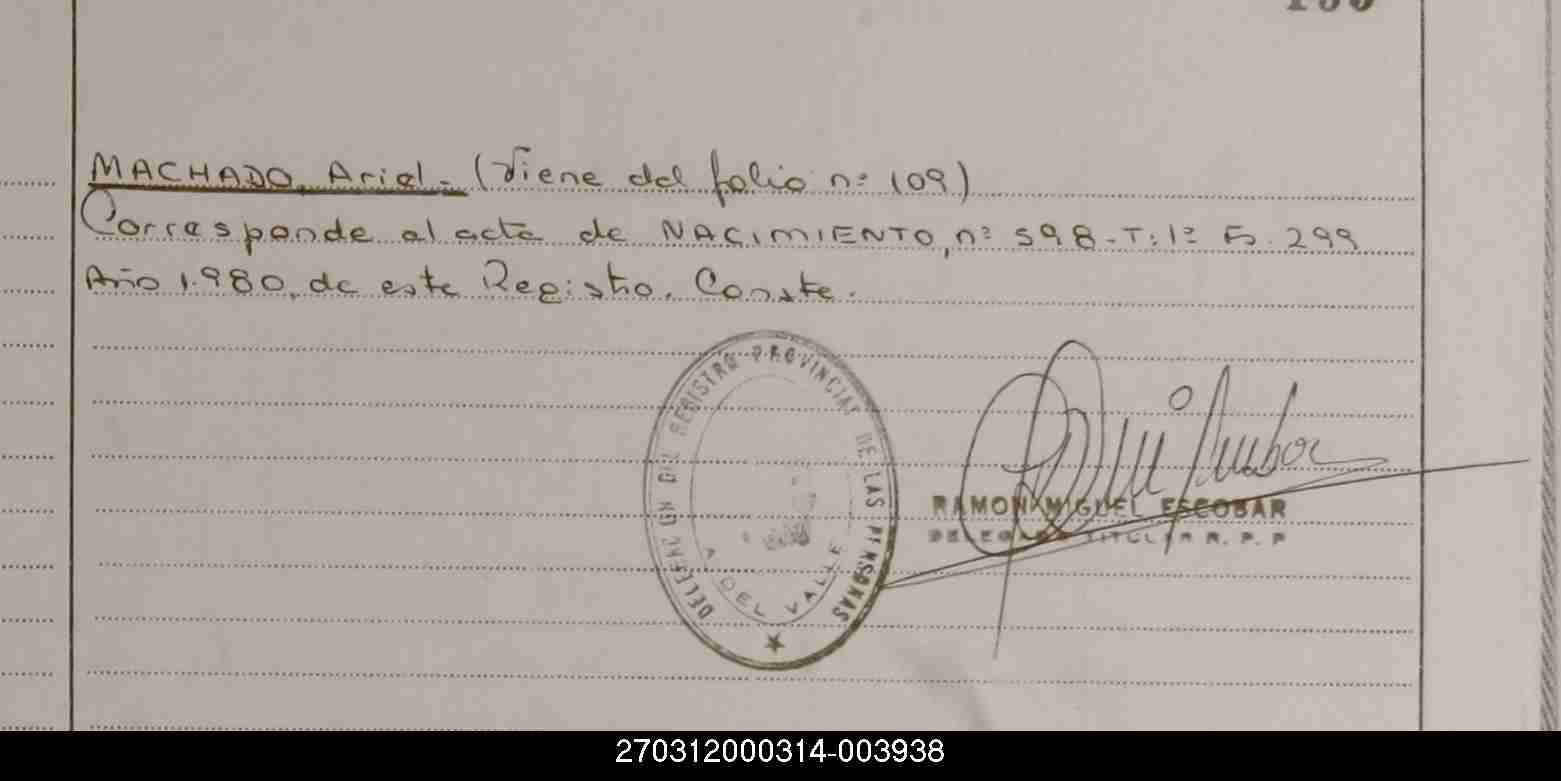 MACHADO, Ariel.- (Viene del folio nº 109)
Corresponde al acta de NACIMIENTO, nº 598-T:1º Fº. 299
Año 1.980, de este Registro. Conste.
DELEGACION DEL REGISTRO PROVINCIAL DE LAS PERSONAS
DEL VALLE
RAMON MIGUEL ESCOBAR
DELEGADO TITULAR R. P. P
270312000314-003938